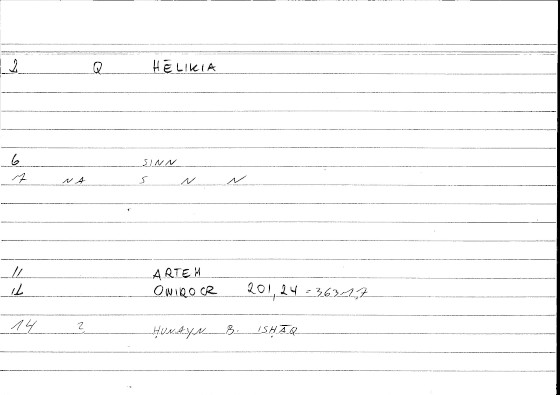 2 Q HĒLIKIA
6 SINN
7 NA S N N
11 ARTEM
12 ONIROCR 201,24 = 363-17
14 2 ḤUNAYN B. ISḤĀQ